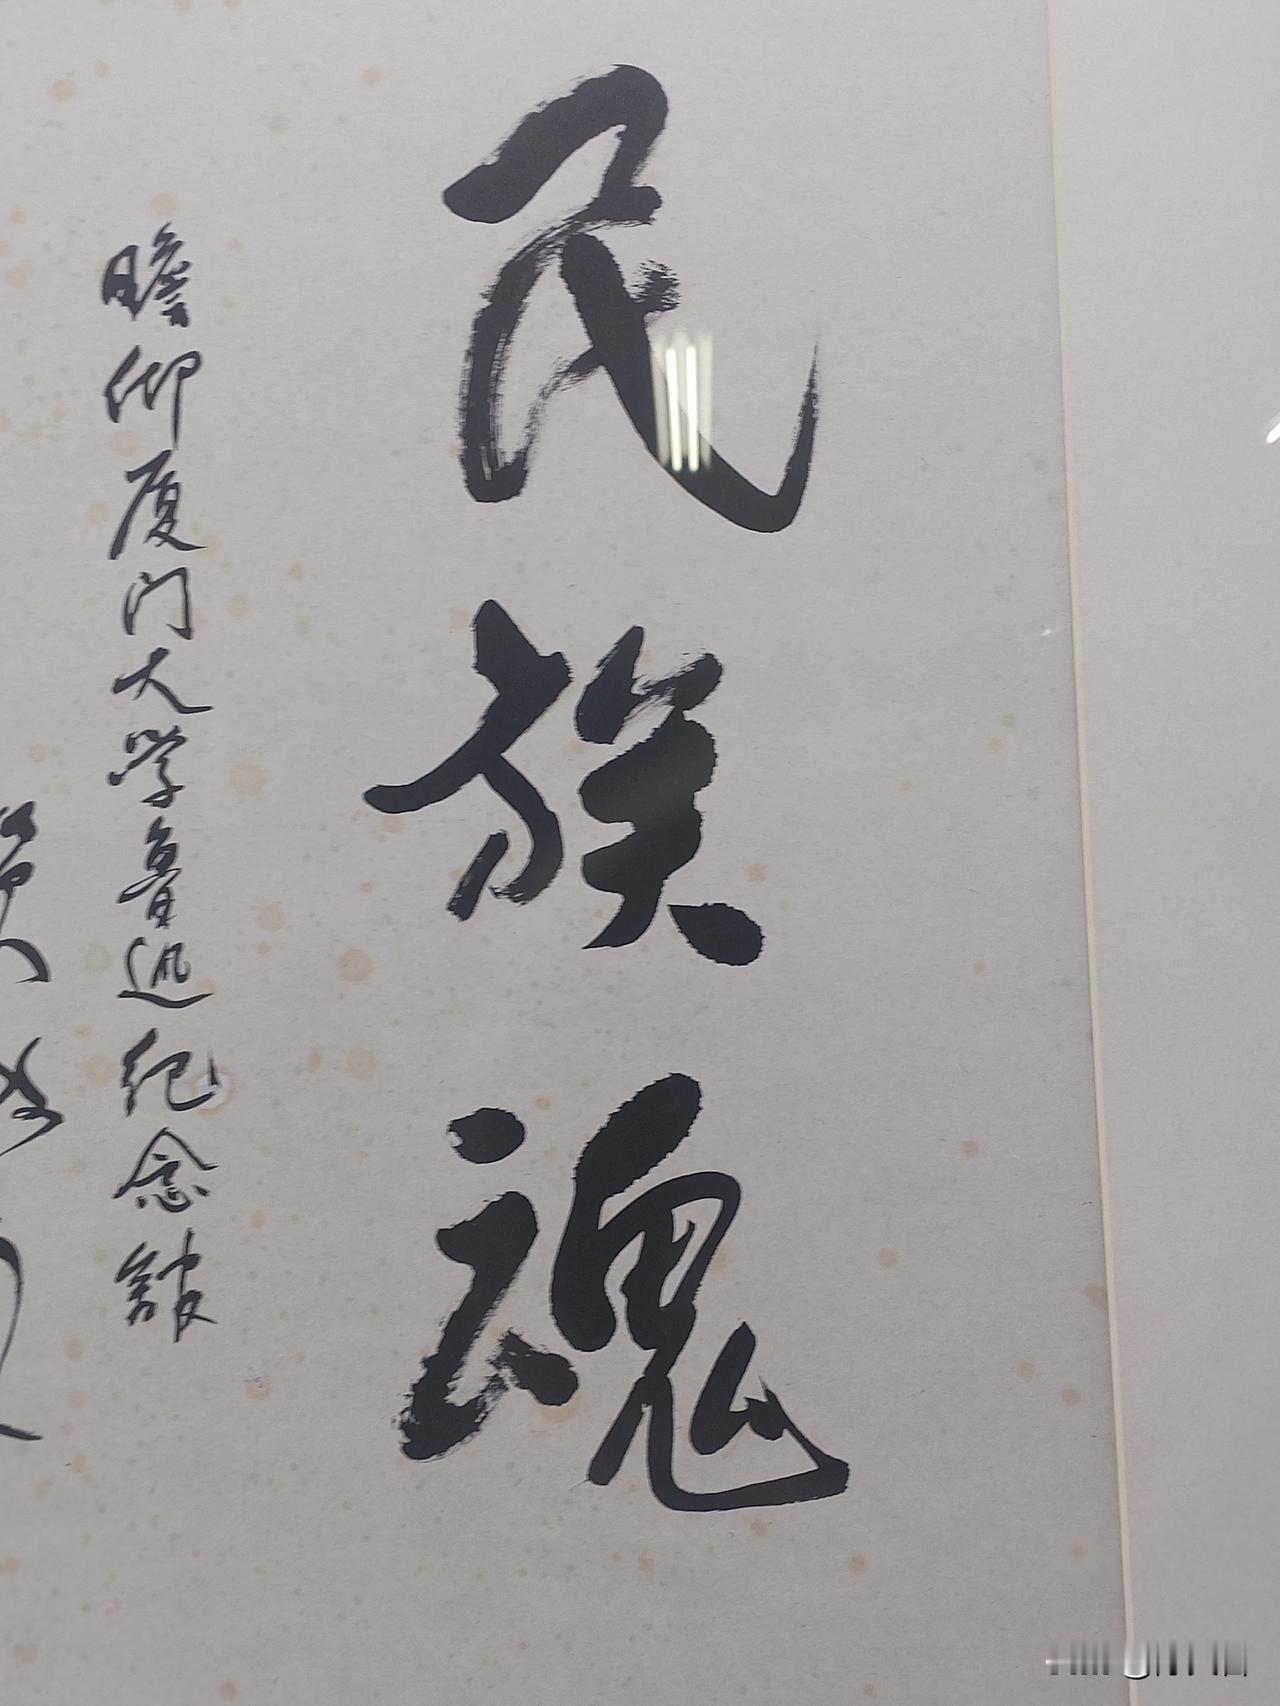 民族魂
瞻仰厦门大学鲁迅纪念馆